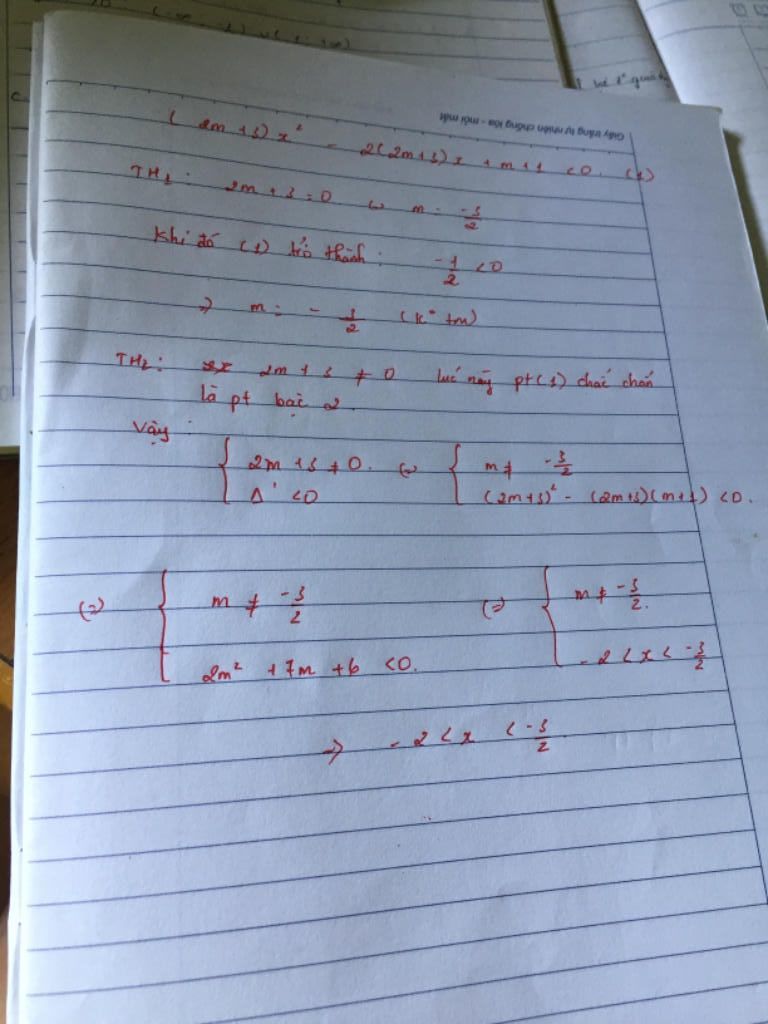 Giấy trắng tự nhiên chống lóa - mỏi mắt
(2m+3)x² - 2(2m+3)x + m+1 <0. (1)
TH1: 2m+3=0 ⇔ m = -3/2
Khi đó (1) trở thành: -1/2 <0
⇒ m = -3/2 (k° tm)
TH2: 2m+3 ≠ 0 lúc này pt(1) chắc chắn
là pt bạc 2.
Vậy:
{ 2m+3 ≠ 0. (=) { m ≠ -3/2
{ Δ' <0 { (2m+3)² - (2m+3)(m+1) <0.
(=) { m ≠ -3/2 (=) { m ≠ -3/2.
{ 2m² +7m +6 <0. { -2 < x < -3/2
⇒ -2 < x < -3/2